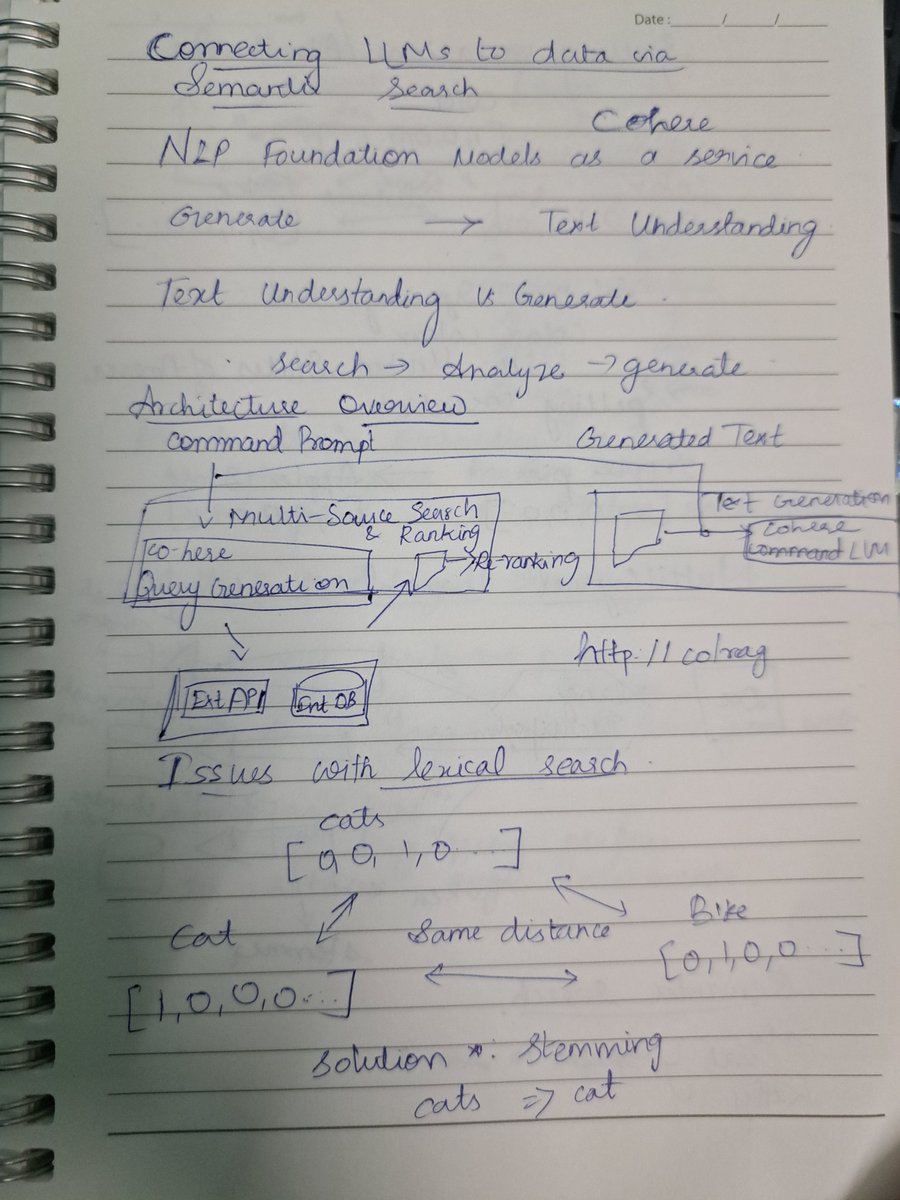 Date: / /
Connecting LLMs to data via
Semantic search
Cohere
NLP Foundation Models as a service
Generate → Text Understanding
Text Understanding vs Generate.
. search → Analyze → generate
Architecture Overview
Command Prompt Generated Text
Multi-Source Search
& Ranking
Co-here
Query Generation
Re-ranking
Text Generation
Cohere
Command LLM
http://co/rag
Ext API Ent DB
Issues with lexical search.
cats
[0, 0, 1, 0...]
Cat Same distance Bike
[1, 0, 0, 0...] [0, 1, 0, 0...]
Solution : Stemming
cats => cat